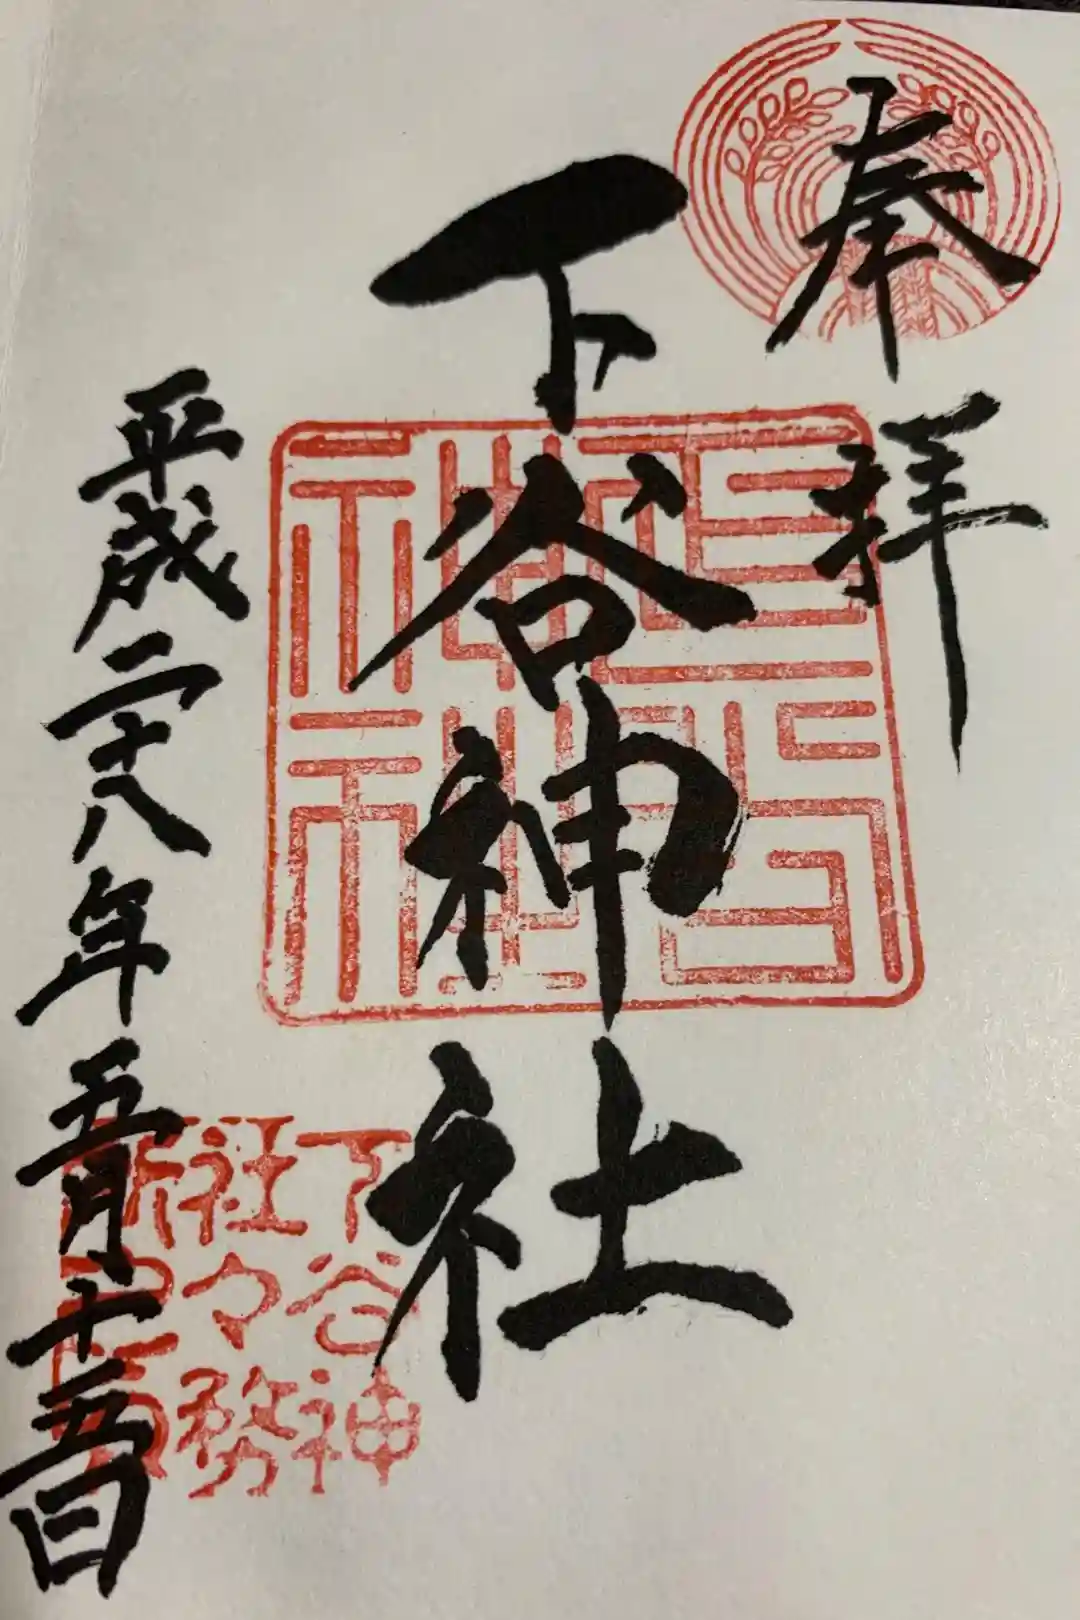 奉拝
下谷神社
平成二十八年五月十五日
下谷神
社々務
所之印